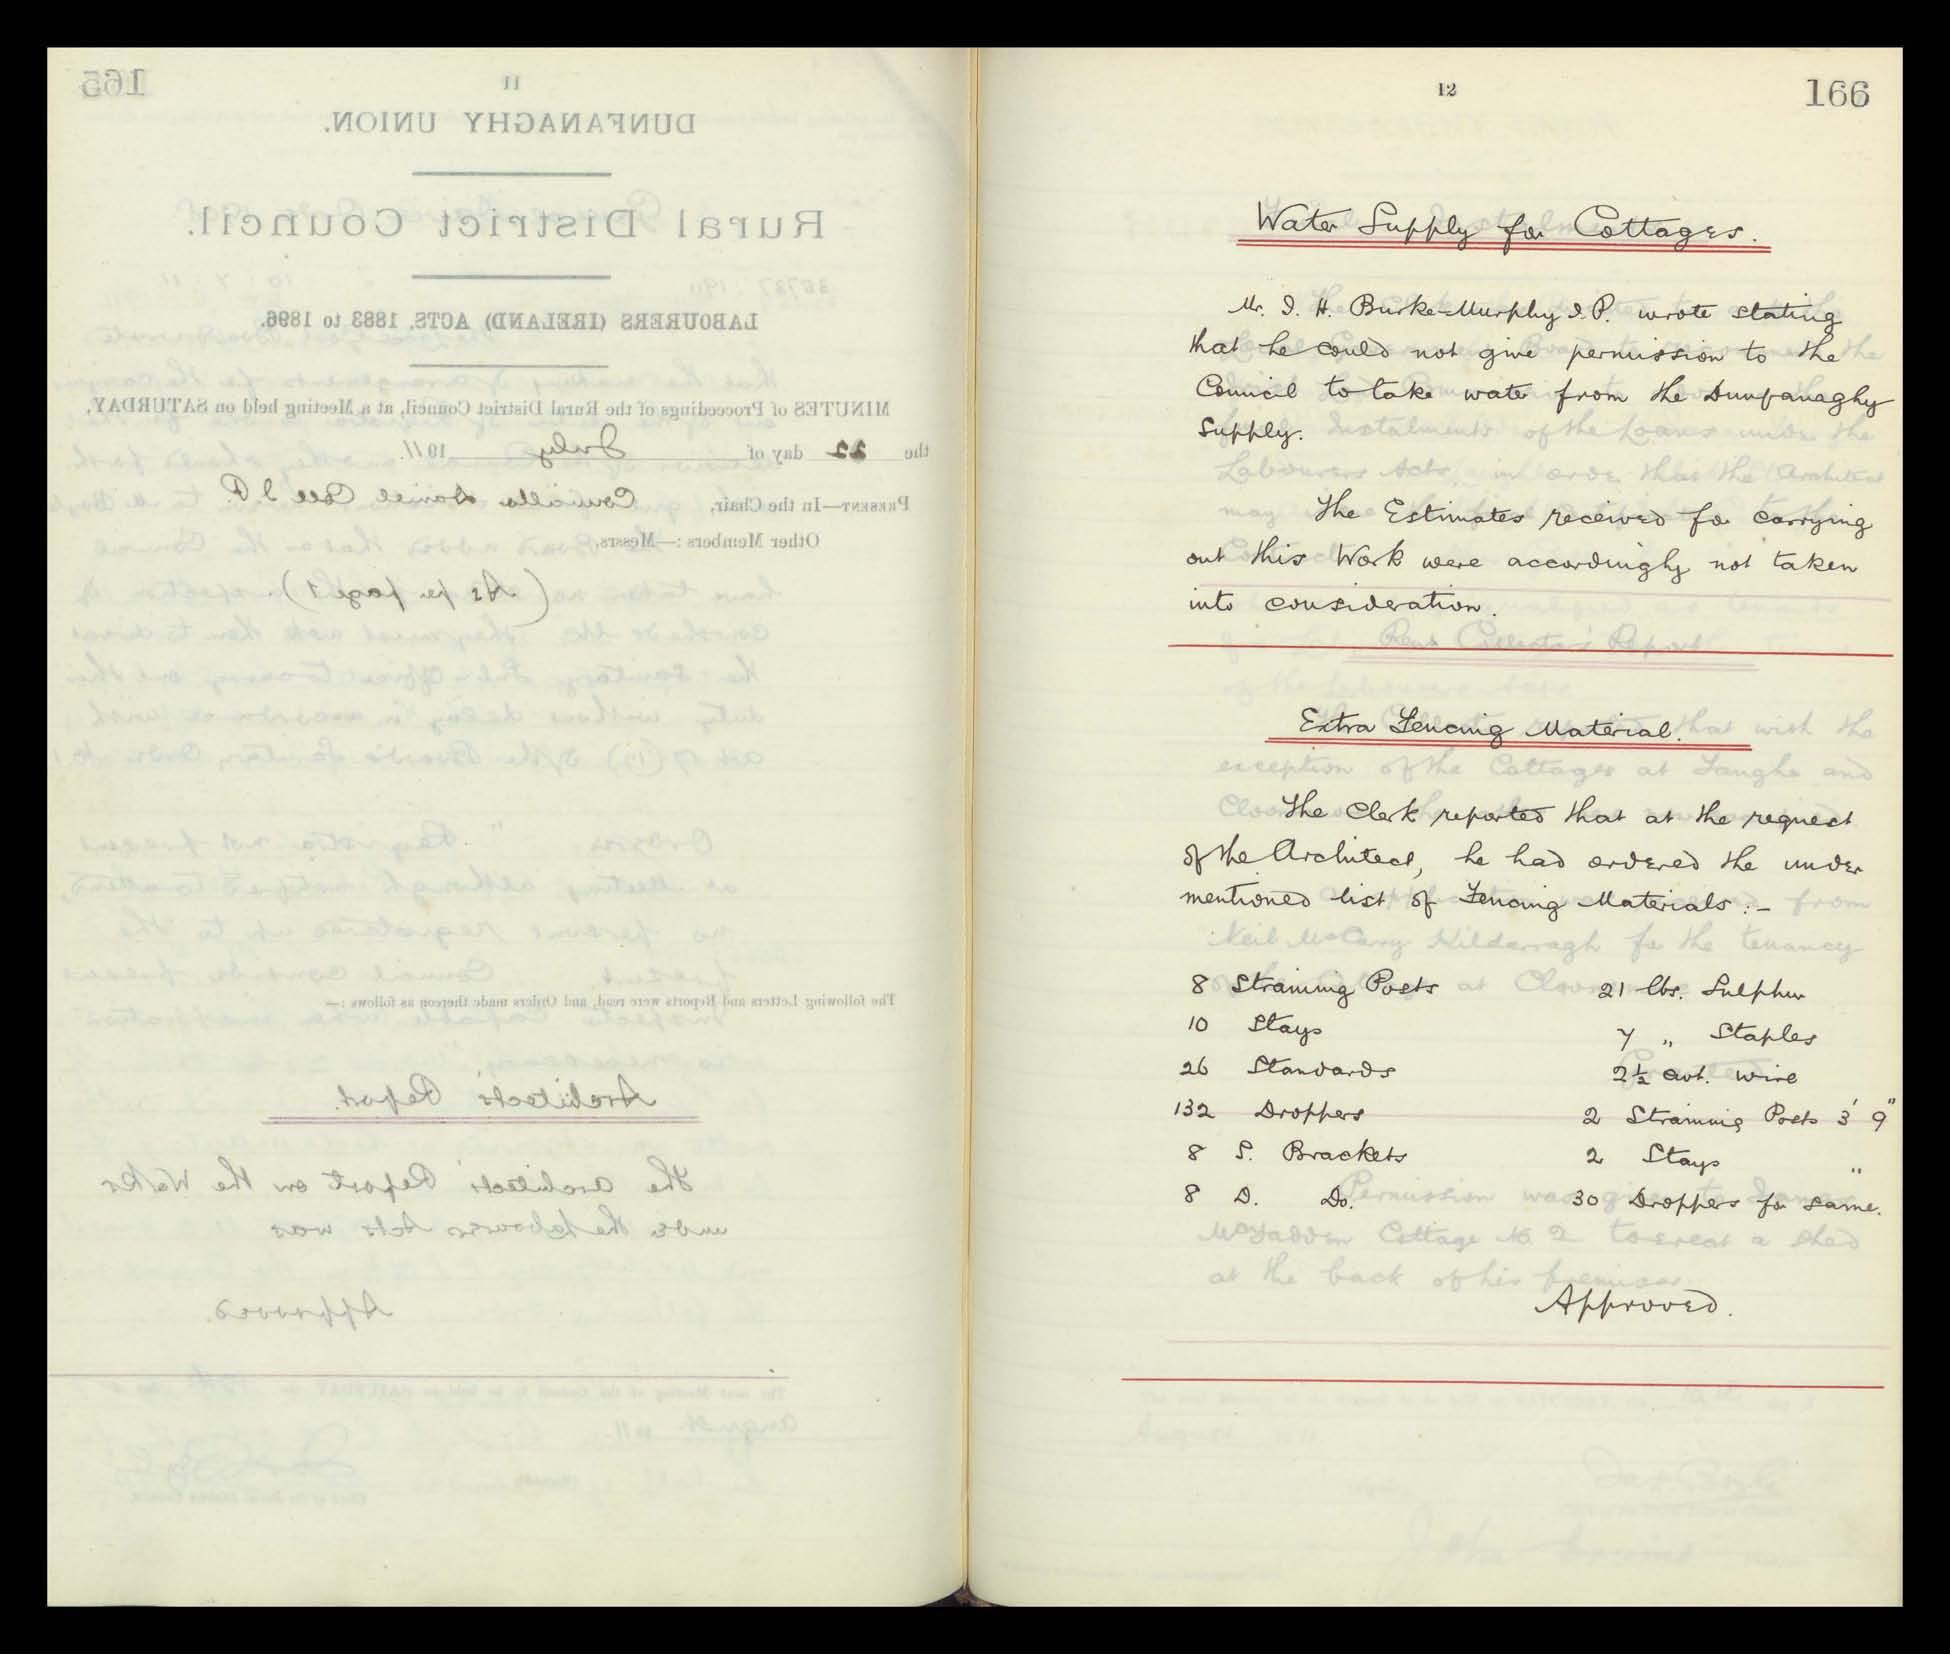 165
11
DUNFANAGHY UNION.
Rural District Council.
LABOURERS (IRELAND) ACTS, 1883 to 1896.
MINUTES of Proceedings of the Rural District Council, at a Meeting held on SATURDAY,
the 22 day of July 1911.
PRESENT—In the Chair, Councillor Daniel Coll J.P.
Other Members:—Messrs.
(As per page 1).
The following Letters and Reports were read, and Orders made thereon as follows:—
Architects Report.
The Architects' Report on the Works
under the Labourers Acts was
Approved.
12
166
Water Supply for Cottages.
Mr. J. H. Burke-Murphy J.P. wrote stating
that he could not give permission to the
Council to take water from the Dunfanaghy
Supply.
The Estimates received for carrying
out this Work were accordingly not taken
into consideration.
Extra Fencing Material.
The Clerk reported that at the request
of the Architect, he had ordered the under
mentioned list of Fencing Materials:-
8 Straining Posts 21 lbs. Sulphur
10 Stays 7 " Staples
26 Standards 2½ cwt. wire
132 Droppers 2 Straining Posts 3' 9"
8 S. Brackets 2 Stays "
8 D. Do. 30 Droppers for same.
Approved.